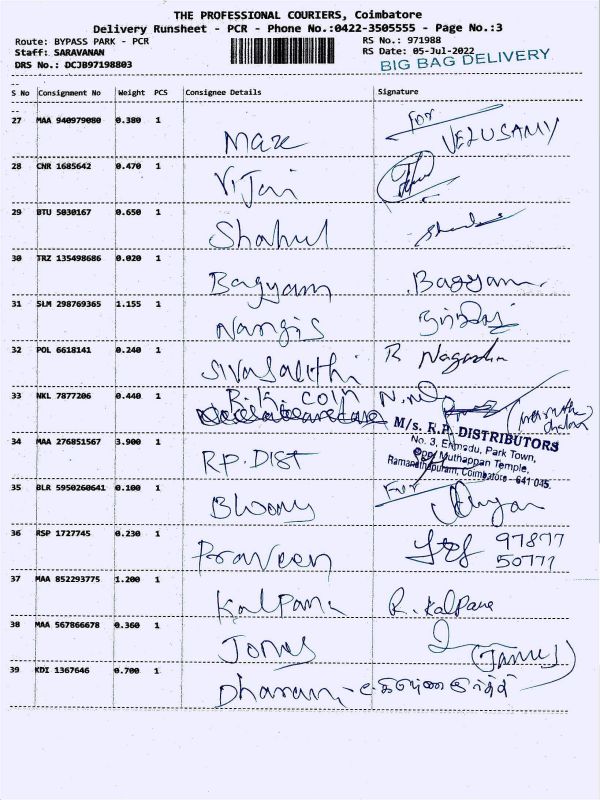 THE PROFESSIONAL COURIERS, Coimbatore
Delivery Runsheet - PCR - Phone No.:0422-3505555 - Page No.:3
Route: BYPASS PARK - PCR
RS No.: 971988
Staff: SARAVANAN
RS Date: 05-Jul-2022
DRS No.: DCJB97198803
BIG BAG DELIVERY
S No Consignment No Weight PCS Consignee Details Signature
27 MAA 940979080 0.380 1 Max For VELUSAMY
28 CNR 1685642 0.470 1 Vijai
29 BTU 5030167 0.650 1 Shahul
30 TRZ 135498686 0.020 1 Bagyam Bagyam
31 SLM 298769365 1.155 1 Nargis
32 POL 6618141 0.240 1 Sivasakthi R Nagesh
33 NKL 7877206 0.440 1 R.K. coin
M/s. R.P. DISTRIBUTORS
No. 3, Ermedu, Park Town,
Opp. Muthappan Temple,
Ramanathapuram, Coimbatore - 641 045.
34 MAA 276851567 3.900 1 R.P. DIST
35 BLR 5950260641 0.100 1 Bloomy For
36 RSP 1727745 0.230 1 Praveen 97877
50771
37 MAA 852293775 1.200 1 Kalpana R. Kalpana
38 MAA 567866678 0.360 1 Jonus
39 KDI 1367646 0.700 1 Dharani